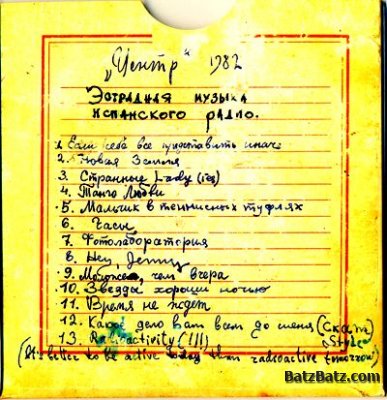 „Центр“ 1982
Эстрадная музыка
испанского радио.
1. Если себе все представить иначе
2. Новая Земля
3. Странные Lady
4. Танго Любви
5. Мальчик в теннисных туфлях
6. Часы
7. Фотолаборатория
8. Hey, Jenny
9. Моложе, чем вчера
10. Звезды хороши ночью
11. Время не ждет
12. Какое дело вам всем до меня (Скат)
13. Radioactivity (!!!) Style
(It's better to be active today than radioactive tomorrow)
BatzBatz.com